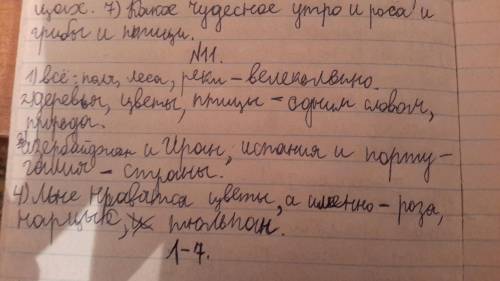 щах. 7) Какое чудесное утро и роса и
грибы и птицы.
№11.
1) всё: поля, леса, реки – велеколвино.
2) деревья, цветы, птицы – одним словом,
природа.
3) азербайджан и Иран, испания и порту-
галия – страны.
4) Мне нравятся цветы, а именно – роза,
нарцыс, тюльпан.
1-7.